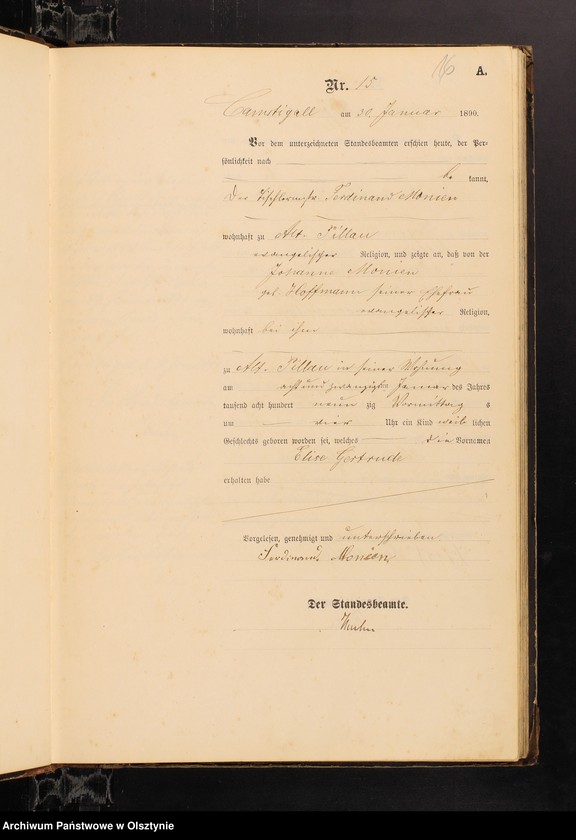 16 A.
Nr. 15
Camstigall am 30 Januar 1890.
Vor dem unterzeichneten Standesbeamten erschien heute, der Per-
sönlichkeit nach
be kannt,
Der Tischlermstr. Ferdinand Monien
wohnhaft zu Alt-Pillau
evangelischer Religion, und zeigte an, daß von der
Johanne Monien
geb. Hoffmann seiner Ehefrau
evangelischer Religion,
wohnhaft bei ihm
zu Alt-Pillau in seiner Wohnung
am acht und zwanzigsten Januar des Jahres
tausend acht hundert neun zig Vormittag s
um vier Uhr ein Kind weib lichen
Geschlechts geboren worden sei, welches die Vornamen
Elise Gertrude
erhalten habe
Vorgelesen, genehmigt und unterschrieben
Ferdinand Monien
Der Standesbeamte.
Archiwum Państwowe w Olsztynie